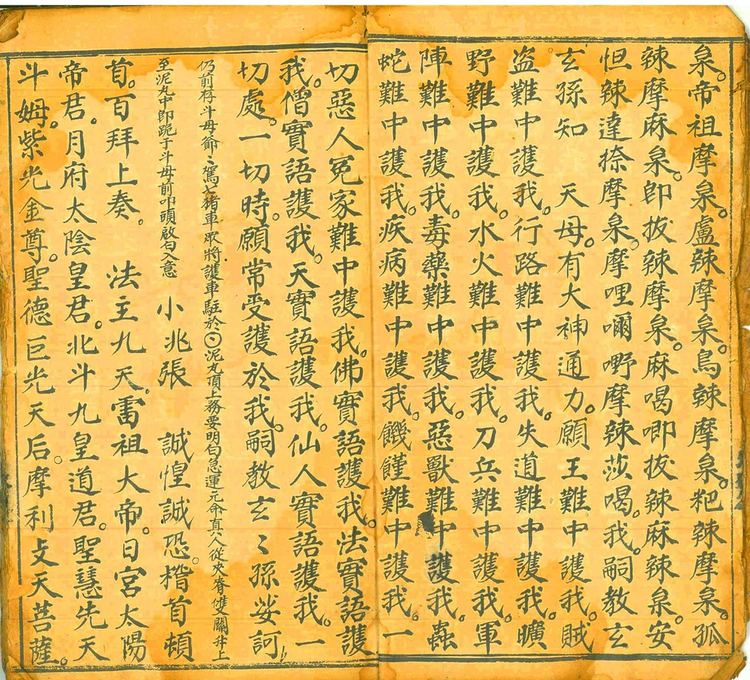 泉。帝祖摩泉。盧辢摩泉。烏辢摩泉。粑辢摩泉。孤
辢摩麻泉。即拔辢摩泉。麻喝唧拔辢麻辢泉。安
怛辢達捺摩泉。摩哩嘢摩辢莎喝。我嗣教玄
玄孫知　天母。有大神通力。願王難中護我。賊
盜難中護我。行路難中護我。失道難中護我。曠
野難中護我。水火難中護我。刀兵難中護我。軍
陣難中護我。毒藥難中護我。惡獸難中護我。蟲
蛇難中護我。疾病難中護我。饑饉難中護我。一
切惡人冤家難中護我。佛實語護我。法實語護
我。僧實語護我。天實語護我。仙人實語護我。一
切處。一切時。願常受護於我。嗣教玄〻孫娑訶
仍前存斗母爺〻駕七猪車眾將護車駐於⊙泥丸頂上務要明白急運元命真人從夾脊雙關升上
至泥丸中即跪于斗母前叩頭啟白入意
小兆張　誠惶誠恐稽首頓
首。百拜上奏。　法主九天。雷祖大帝。日宮太陽
帝君。月府太陰皇君。北斗九皇道君。聖慧先天
斗姆。紫光金尊。聖德巨光天后。摩利支天菩薩。